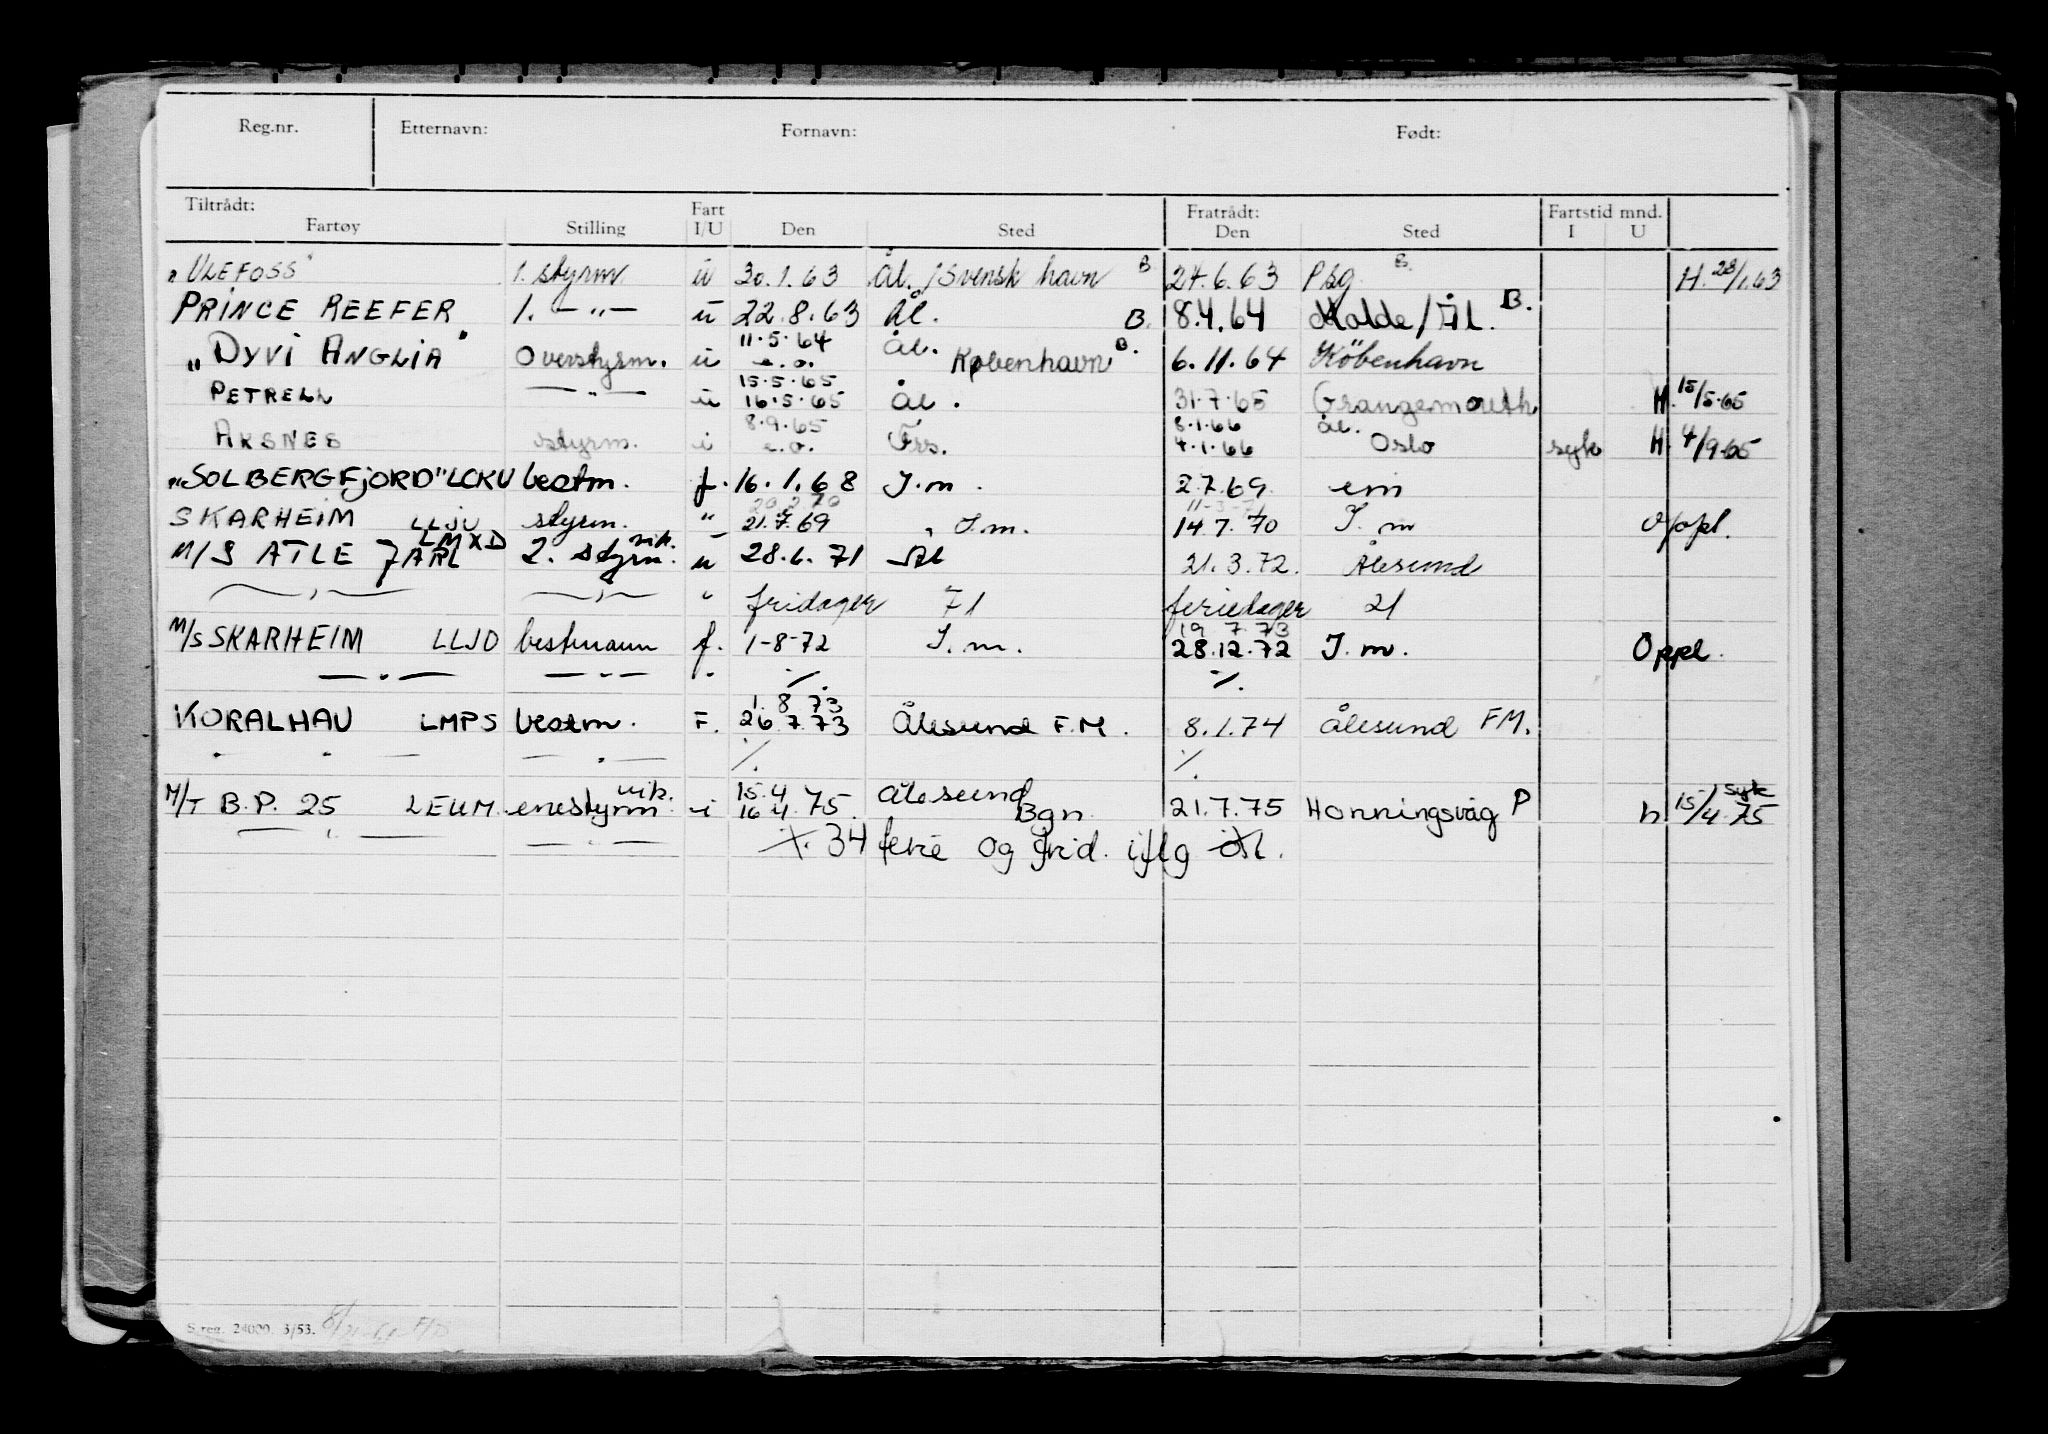 Reg.nr. Etternavn: Fornavn: Født:
Tiltrådt: Fart Fratrådt: Fartstid mnd.
Fartøy Stilling I/U Den Sted Den Sted I U
"ULEFOSS" 1. styrm. u 30.1.63 Ål. / Svensk havn B 24.6.63 Psg B. H. 28/1.63
PRINCE REEFER 1. -"- u 22.8.63 Ål. B. 8.4.64 Molde / Ål. B.
11.5.64 Ål.
"DYVI ANGLIA" Overstyrm. u e.o. København B. 6.11.64 København
15.5.65
PETRELL -"- u 16.5.65 Ål. 31.7.65 Grangemouth H. 15/5.65
8.9.65 8.1.66 Ål.
AKSNES styrm. i e.o. 4.1.66 Oslo syk H. 4/9.65
"SOLBERGFJORD" LCKU bestm. f. 16.1.68 I.m. 2.7.69 em
SKARHEIM LLJO styrm. " 21.7.69 I.m. 14.7.70 I.m Oppl.
LMXD vik.
M/S ATLE JARL 2. styrm. u 28.6.71 Ål 21.3.72. Ålesund
-"- -"- " fridager 71 feriedager 21
19 7.73
M/S SKARHEIM LLJO bestmann f. 1-8-72 I.m. 28.12.72 I.m. Oppl.
-"- -"- " ./. ./.
1.8.73
KORALHAV LMPS bestm. F. 26.7.73 Ålesund F.M. 8.1.74 Ålesund FM.
" " " -"- ./. ./.
vik. 15.4 Ålesund syk
M/T B.P. 25 LEUM enestyrm i 16.4.75. Bgn. 21.7.75 Honningsvåg P h 15/4.75
-"- -"- +. 34 ferie og frid. iflg Ål.
S.reg. 24000. 3/53.